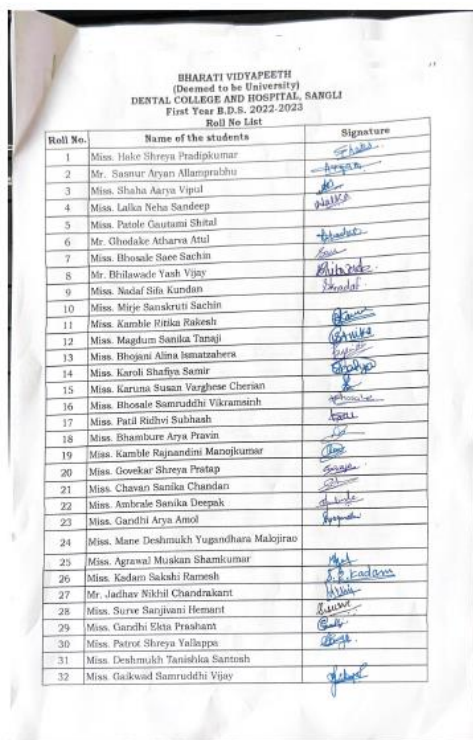 BHARATI VIDYAPEETH
(Deemed to be University)
DENTAL COLLEGE AND HOSPITAL, SANGLI
First Year B.D.S. 2022-2023
Roll No List
Roll No. Name of the students Signature
1 Miss. Hake Shreya Pradipkumar
2 Mr. Sasnur Aryan Allamprabhu
3 Miss. Shaha Aarya Vipul
4 Miss. Lalka Neha Sandeep
5 Miss. Patole Gautami Shital
6 Mr. Ghodake Atharva Atul
7 Miss. Bhosale Saee Sachin
8 Mr. Bhilawade Yash Vijay
9 Miss. Nadaf Sifa Kundan
10 Miss. Mirje Sanskruti Sachin
11 Miss. Kamble Ritika Rakesh
12 Miss. Magdum Sanika Tanaji
13 Miss. Bhojani Alina Ismatzahera
14 Miss. Karoli Shafiya Samir
15 Miss. Karuna Susan Varghese Cherian
16 Miss. Bhosale Samruddhi Vikramsinh
17 Miss. Patil Ridhvi Subhash
18 Miss. Bhambure Arya Pravin
19 Miss. Kamble Rajnandini Manojkumar
20 Miss. Govekar Shreya Pratap
21 Miss. Chavan Sanika Chandan
22 Miss. Ambrale Sanika Deepak
23 Miss. Gandhi Arya Amol
24 Miss. Mane Deshmukh Yugandhara Malojirao
25 Miss. Agrawal Muskan Shamkumar
26 Miss. Kadam Sakshi Ramesh S.R.Kadam
27 Mr. Jadhav Nikhil Chandrakant
28 Miss. Surve Sanjivani Hemant
29 Miss. Gandhi Ekta Prashant
30 Miss. Patrot Shreya Yallappa
31 Miss. Deshmukh Tanishka Santosh
32 Miss. Gaikwad Samruddhi Vijay